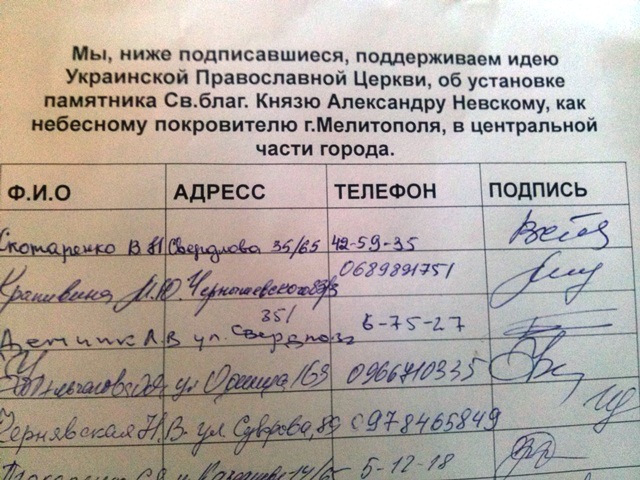 Мы, ниже подписавшиеся, поддерживаем идею
Украинской Православной Церкви, об установке
памятника Св.благ. Князю Александру Невскому, как
небесному покровителю г.Мелитополя, в центральной
части города.
Ф.И.О АДРЕСС ТЕЛЕФОН ПОДПИСЬ
Скотаренко В Н Свердлова 35/65 42-59-35
Крапивина М.Ю. Чернышевского 0689891751
351
ул. 6-75-27
ул 163 0966710335
Чернявская Н.В. ул Суворова, 89 0978465849
5-12-18